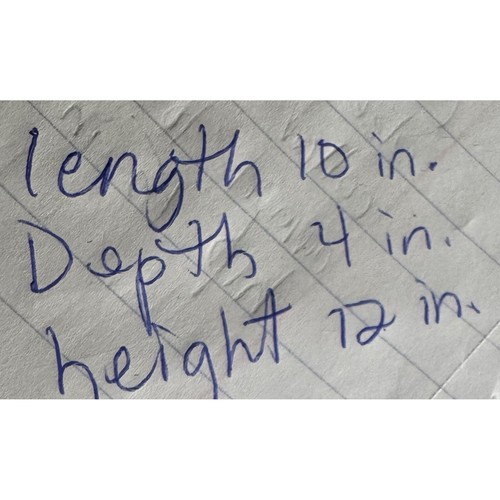 length 10 in.
Depth 4 in.
height 12 in.